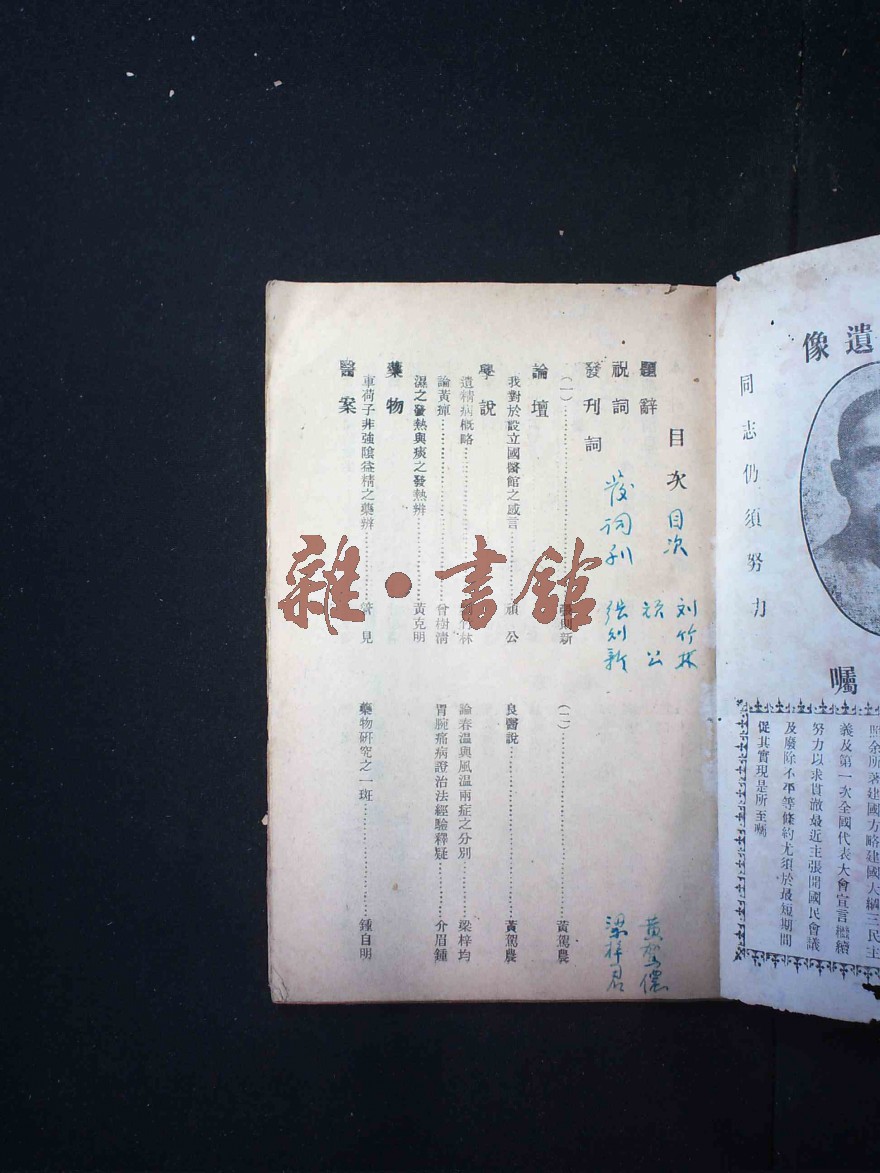 遺像
同志仍須努力
囑
照余所著建國方略建國大綱三民主
義及第一次全國代表大會宣言繼續
努力以求貫澈最近主張開國民會議
及廢除不平等條約尤須於最短期間
促其實現是所至囑
目次
目次
刘竹林
題辭
頑公
黄駕儂
祝詞
發詞刋
張則新
梁梓君
發刊詞
(一)……張則新
(二)……黃駕農
論壇
我對於設立國醫館之感言……頑公
良醫說……黃駕農
學說
遺精病概略……劉竹林
論春溫與風溫兩症之分別……梁梓均
論黃疸……曾樹清
胃腕痛病證治法經驗釋疑……介眉鍾
濕之發熱與痰之發熱辨……黃克明
藥物
車荷子非強陰益精之藥辨……管見
藥物研究之一斑……鍾自明
醫案
雜·書館